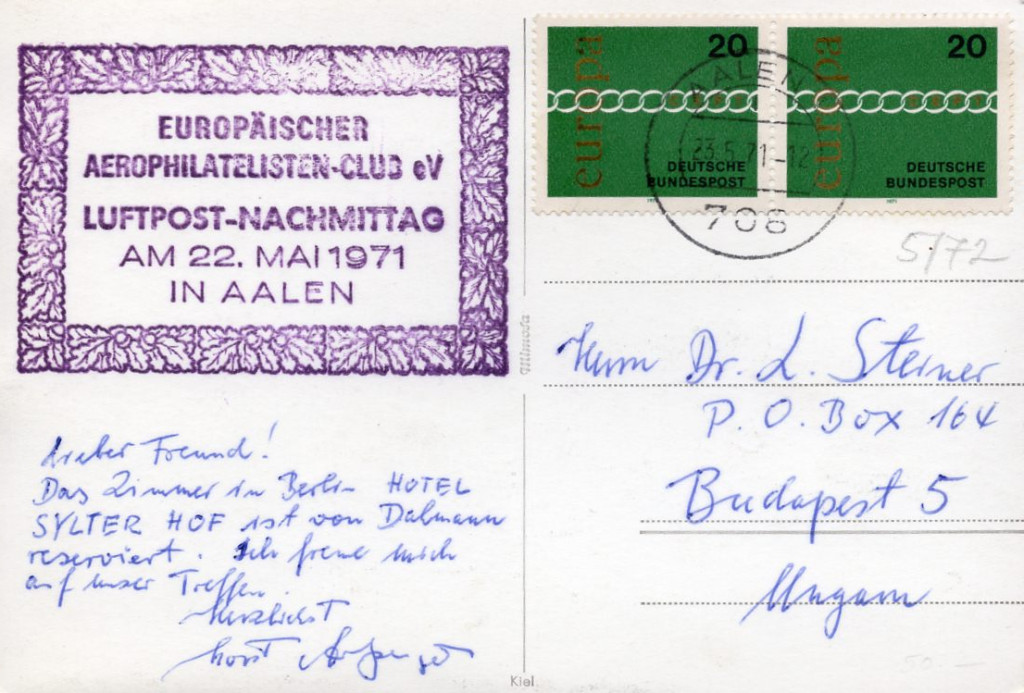 EUROPÄISCHER
AEROPHILATELISTEN-CLUB eV
LUFTPOST-NACHMITTAG
AM 22. MAI 1971
IN AALEN
europa
20
DEUTSCHE
BUNDESPOST
europa
20
DEUTSCHE
BUNDESPOST
AALEN
23.5.71-12
708
5/72
Herrn Dr. L. Steiner
P. O. Box 164
Budapest 5
Ungarn
Lieber Freund!
Das Zimmer in Berlin HOTEL
SYLTER HOF ist von Dahmann
reserviert. Ich freue mich
auf unser Treffen.
Herzlichst
Horst
mimosa
Kiel
50.-